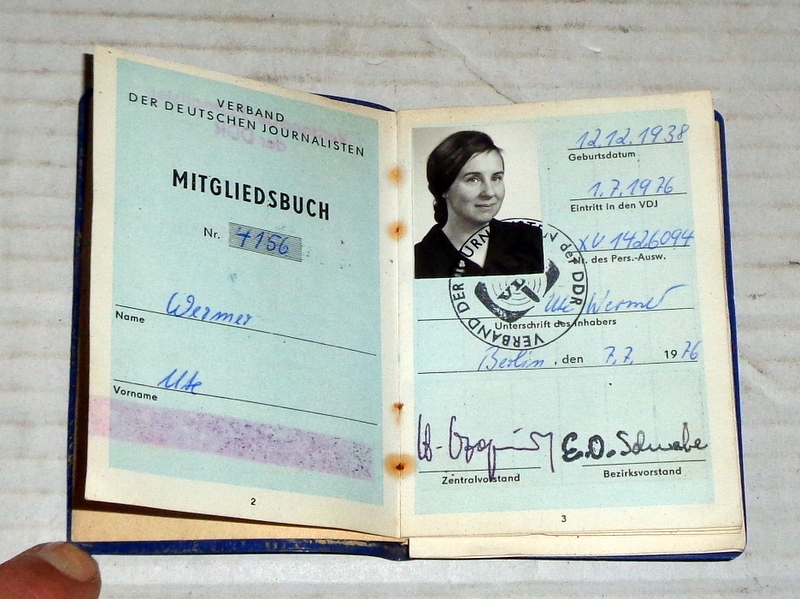 VERBAND
DER DEUTSCHEN JOURNALISTEN
MITGLIEDSBUCH
Nr. 7156
Wermer
Name
Ute
Vorname
2
12.12.1938
Geburtsdatum
1.7.1976
Eintritt in den VDJ
XV 1426094
Nr. des Pers.-Ausw.
VERBAND DER JOURNALISTEN der DDR
Ute Wermer
Unterschrift des Inhabers
Berlin, den 7.7. 1976
E.O. Schwabe
Zentralvorstand
Bezirksvorstand
3